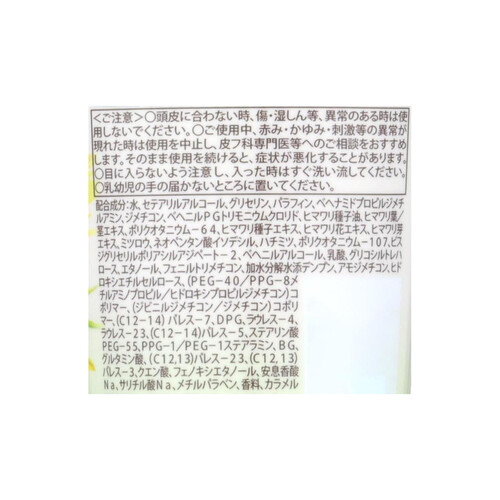 <ご注意>○頭皮に合わない時、傷・湿しん等、異常のある時は使
用しないでください。○ご使用中、赤み・かゆみ・刺激等の異常が
現れた時は使用を中止し、皮フ科専門医等へご相談をおすすめ
します。そのまま使用を続けると、症状が悪化することがあります。
○目に入らないよう注意し、入った時はすぐ洗い流してください。
○乳幼児の手の届かないところに置いてください。
配合成分:水、セテアリルアルコール、グリセリン、パラフィン、ベヘナミドプロピルジメチ
ルアミン、ジメチコン、ベヘニルPGトリモニウムクロリド、ヒマワリ種子油、ヒマワリ葉/
茎エキス、ポリクオタニウム-64、ヒマワリ種子エキス、ヒマワリ花エキス、ヒマワリ芽エキ
ス、ミツロウ、ネオペンタン酸イソデシル、ハチミツ、ポリクオタニウム-107、ビス
ジグリセリルポリアシルアジペート-2、ベヘニルアルコール、乳酸、グリコシルトレハ
ロース、エタノール、フェニルトリメチコン、加水分解水添デンプン、アモジメチコン、ヒド
ロキシエチルセルロース、(PEG-40/PPG-8メ
チルアミノプロピル/ヒドロキシプロピルジメチコン)コ
ポリマー、(ジビニルジメチコン/ジメチコン)コポリ
マー、(C12-14)パレス-7、DPG、ラウレス-4、
ラウレス-23、(C12-14)パレス-5、ステアリン酸
PEG-55、PPG-1/PEG-1ステアラミン、BG、
グルタミン酸、(C12,13)パレス-23、(C12,13)
パレス-3、クエン酸、フェノキシエタノール、安息香酸
Na、サリチル酸Na、メチルパラベン、香料、カラメル